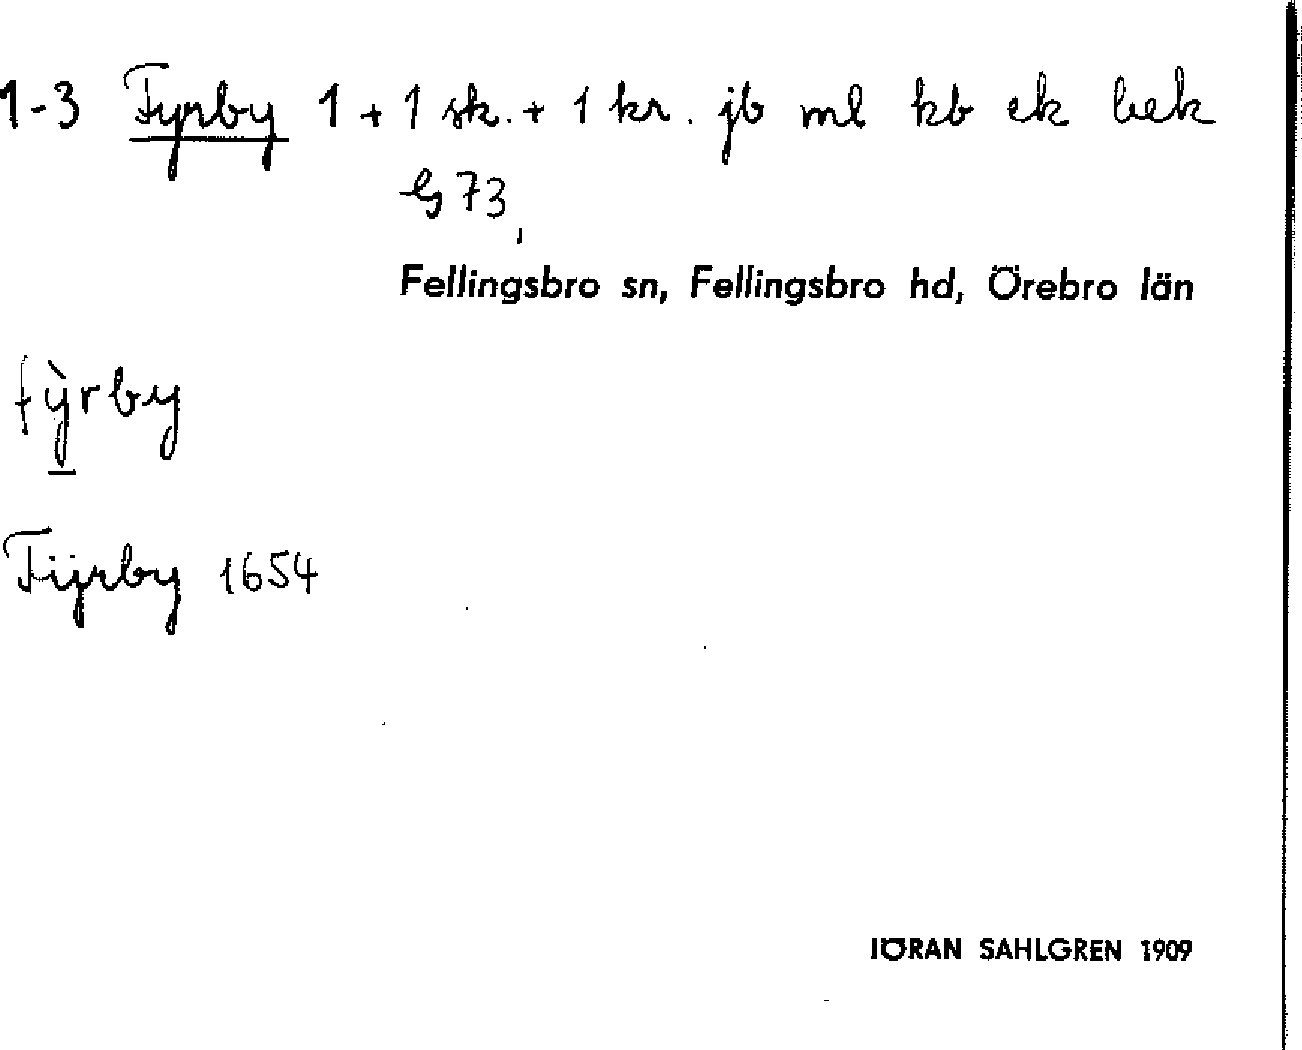 1-3 Fyrby 1 + 1 sk. + 1 kr. jb ml kb ek bek
G 73,
Fellingsbro sn, Fellingsbro hd, Örebro län
fỳrby
Fijrby 1654
JÖRAN SAHLGREN 1909